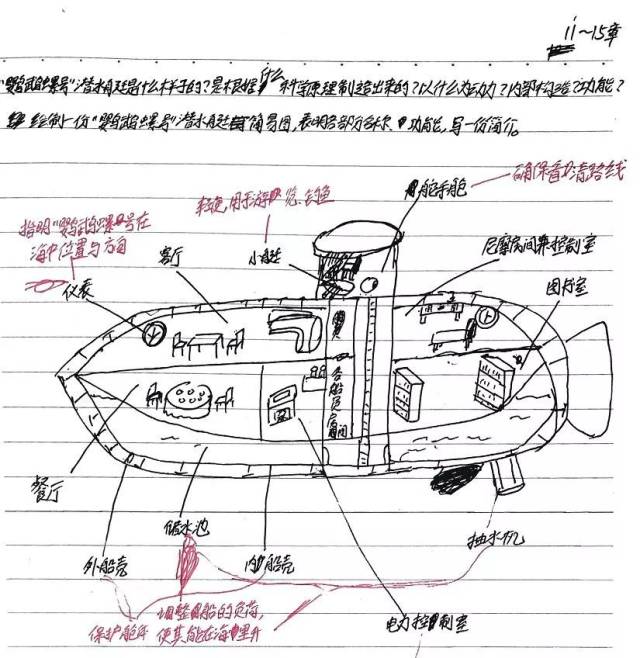 11~15章
"鹦鹉螺号"潜水艇是什么样子的？是根据什么科学原理制造出来的？以什么为动力？内部构造？功能？
绘制一份"鹦鹉螺号"潜水艇简易图，表明各部分名称、功能，写一份简介。
确保看清路线
轻便，用于游览、去鱼
舵手舱
指明"鹦鹉螺"号在
海中位置与方向
客厅
小艇
尼摩房间兼控制室
仪表
图书室
船员房间
餐厅
储水池
抽水机
外船壳
内船壳
调整船的负荷，
使其能在海里升
保护船体
电力控制室